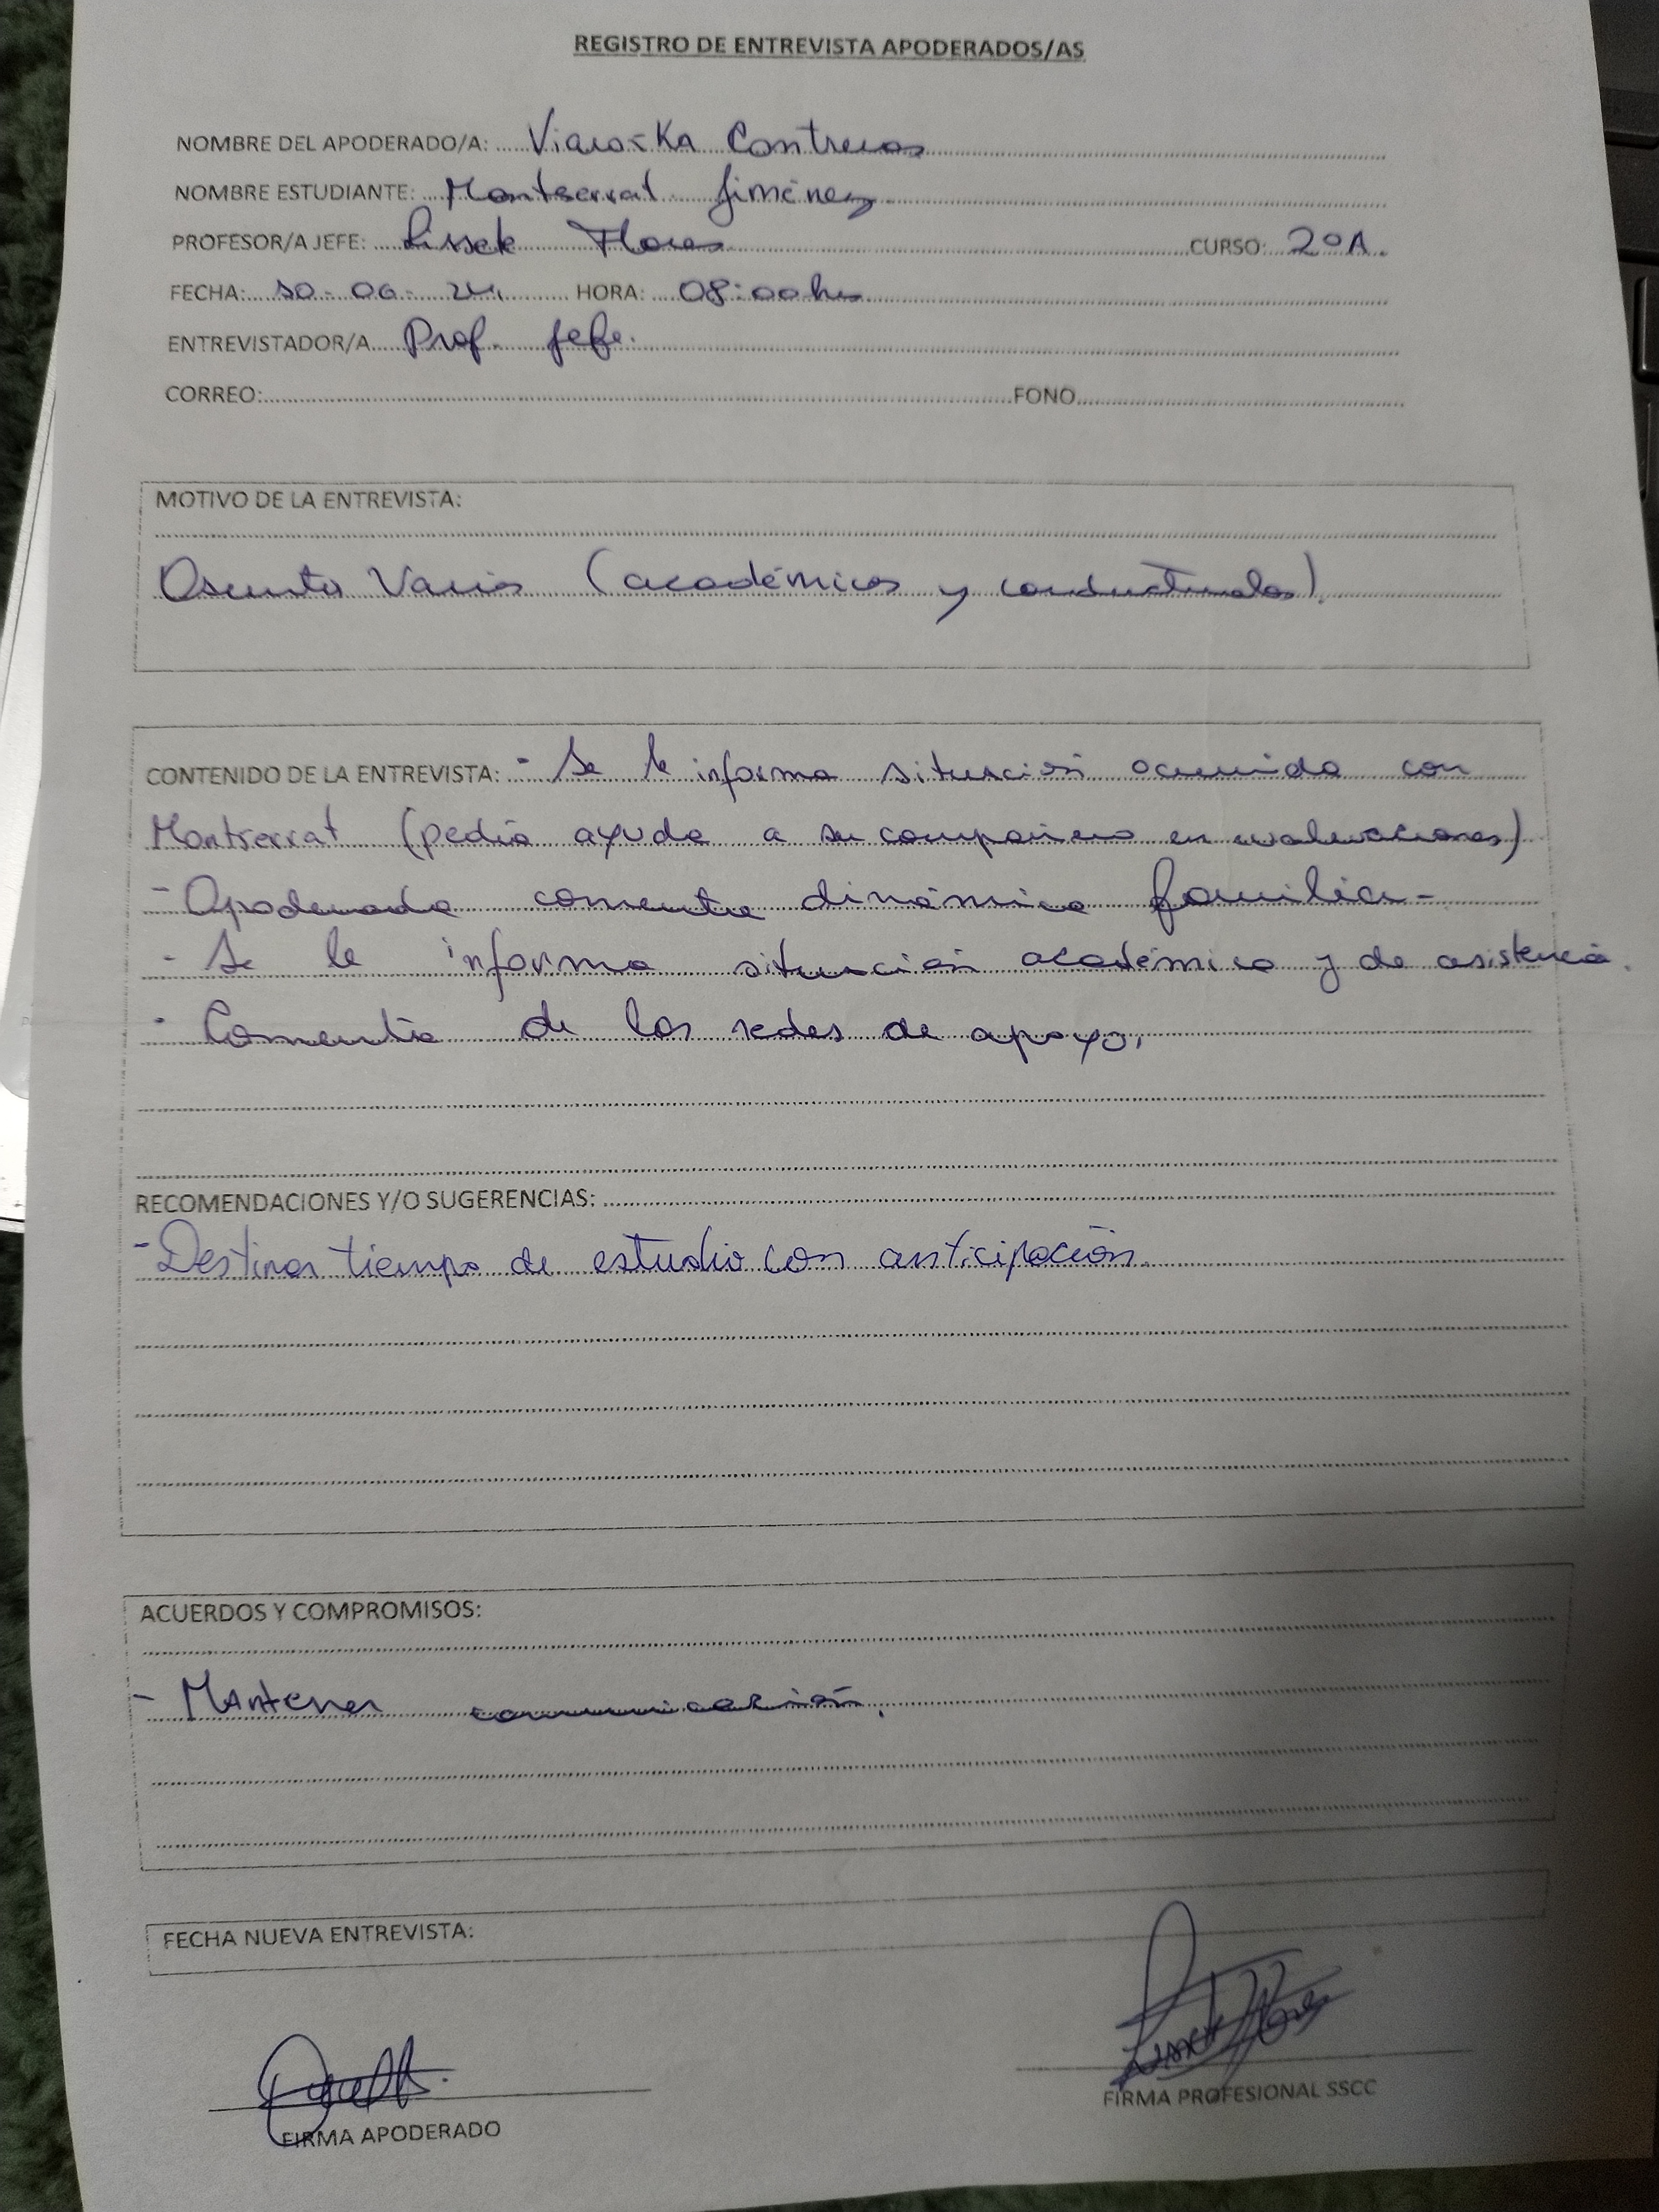 REGISTRO DE ENTREVISTA APODERADOS/AS
NOMBRE DEL APODERADO/A: Contreras
NOMBRE ESTUDIANTE: Montserrat Jiménez
PROFESOR/A JEFE: Lissette Flores CURSO: 2ºA.
FECHA: HORA: 08:00hrs
ENTREVISTADOR/A Prof. Jefe.
CORREO: FONO
MOTIVO DE LA ENTREVISTA:
Asuntos Varios (académicos y conductuales).
CONTENIDO DE LA ENTREVISTA: - Se le informa situación ocurrida con
Montserrat (pedía ayuda a su compañero en evaluaciones)
- Apoderada comenta dinámica familiar-
- Se le informa situación académica y de asistencia.
- Comenta de las redes de apoyo.
RECOMENDACIONES Y/O SUGERENCIAS:
- Destinar tiempo de estudio con anticipación.
ACUERDOS Y COMPROMISOS:
- Mantener comunicación.
FECHA NUEVA ENTREVISTA:
FIRMA APODERADO
FIRMA PROFESIONAL SSCC